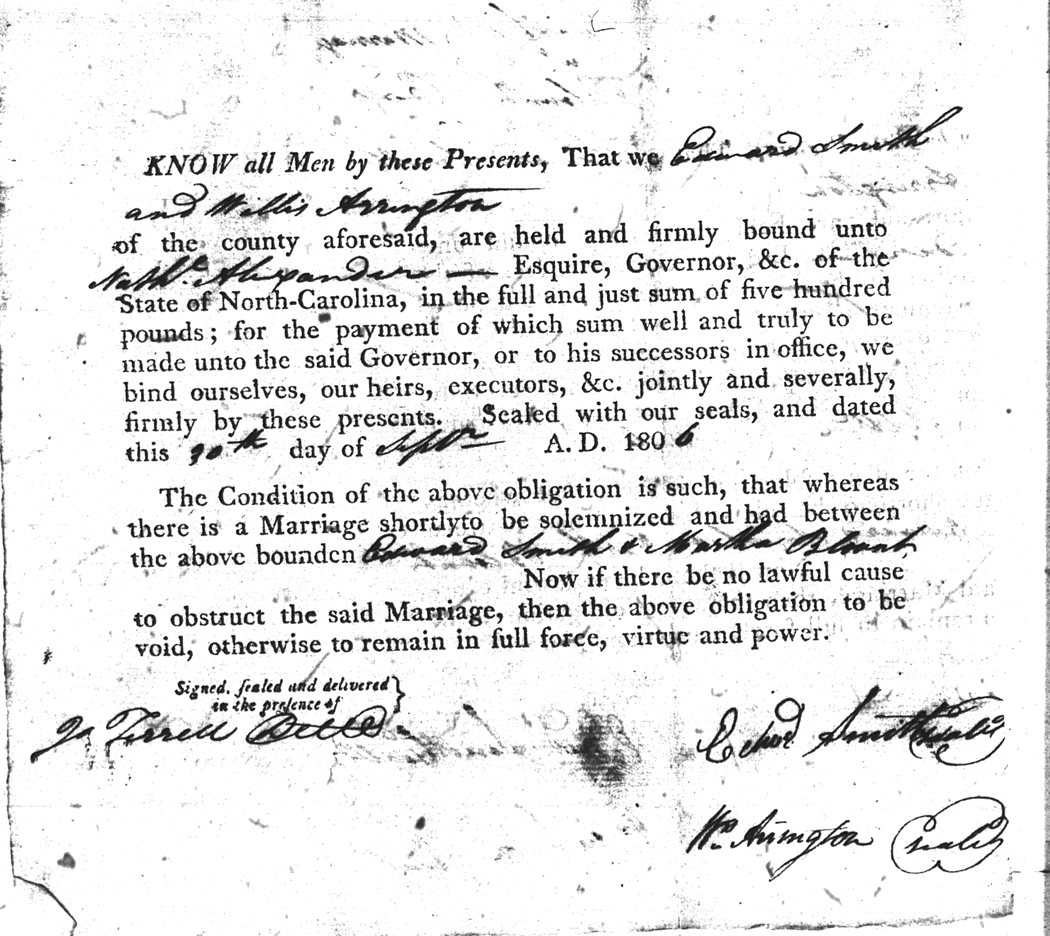 KNOW all Men by these Presents, That we Edward Smith
and Willis Arrington
of the county aforesaid, are held and firmly bound unto
Nathl. Alexander — Esquire, Governor, &c. of the
State of North-Carolina, in the full and just sum of five hundred
pounds; for the payment of which sum well and truly to be
made unto the said Governor, or to his successors in office, we
bind ourselves, our heirs, executors, &c. jointly and severally,
firmly by these presents. Sealed with our seals, and dated
this 30th day of Septr A. D. 1806
The Condition of the above obligation is such, that whereas
there is a Marriage shortlyto be solemnized and had between
the above bounden Edward Smith & Martha Blount
Now if there be no lawful cause
to obstruct the said Marriage, then the above obligation to be
void, otherwise to remain in full force, virtue and power.
Signed, sealed and delivered
in the presence of
Terrell
Edwd Smith seale
Ws Arrington seale